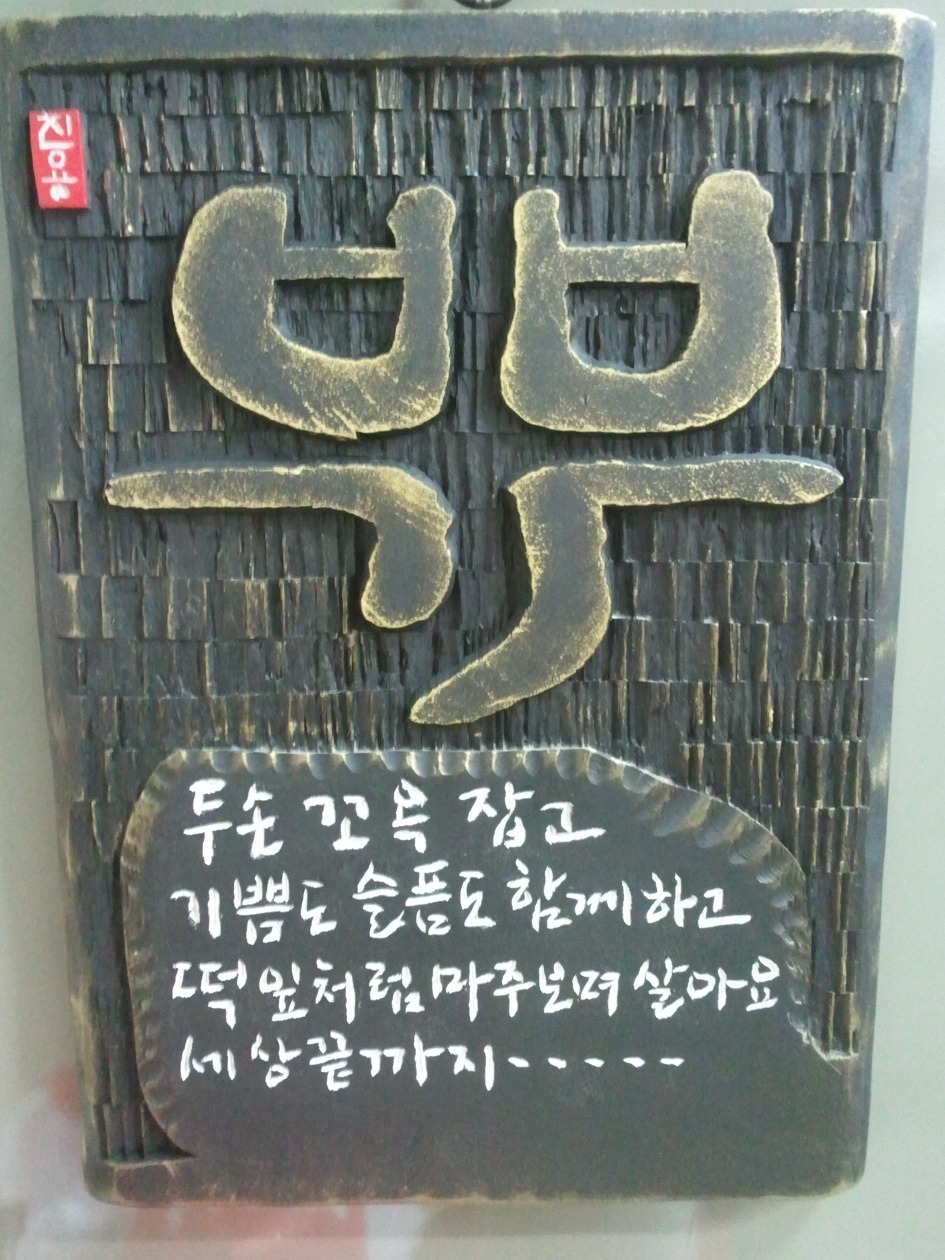 부부
두손 꼬옥 잡고
기쁨도 슬픔도 함께하고
떡잎처럼 마주보며 살아요
세상끝까지-----